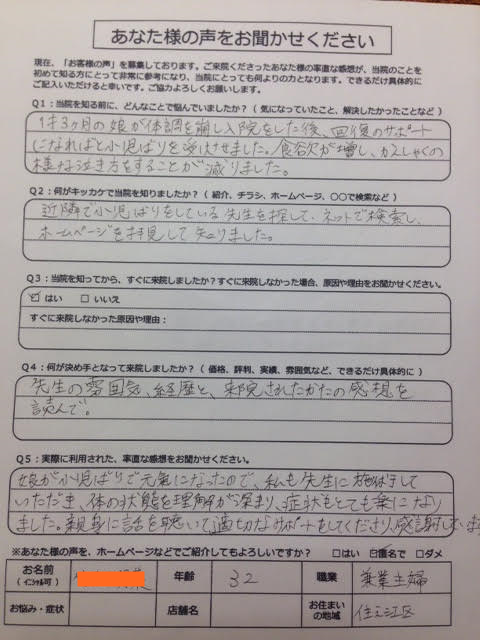 あなた様の声をお聞かせください
現在、「お客様の声」を募集しております。ご来院くださったあなた様の率直な感想が、当院のことを
初めて知る方にとって非常に参考になり、当院にとっても何よりの力となります。できるだけ具体的に
ご記入いただけると幸いです。ご協力よろしくお願いします。
Q1：当院を知る前に、どんなことで悩んでいましたか？（ 気になっていたこと、解決したかったことなど ）
1才3ヶ月の娘が体調を崩し入院をした後、回復のサポート
になればと小児ばりを受けさせました。食欲が増し、かんしゃくの
様な泣き方をすることが減りました。
Q2：何がキッカケで当院を知りましたか？（ 紹介、チラシ、ホームページ、〇〇で検索など ）
近隣で小児ばりをしている先生を探して、ネットで検索し、
ホームページを拝見して知りました。
Q3：当院を知ってから、すぐに来院しましたか？すぐに来院しなかった場合、原因や理由をお聞かせください。
☑ はい　□ いいえ
すぐに来院しなかった原因や理由：
Q4：何が決め手となって来院しましたか？（ 価格、評判、実績、雰囲気など、できるだけ具体的に ）
先生の雰囲気、経歴と、来院されたかたの感想を
読んで。
Q5：実際に利用された、率直な感想をお聞かせください。
娘が小児ばりで元気になったので、私も先生に施術して
いただき、体の状態を理解が深まり、症状もとても楽になり
ました。親身に話を聴いて、適切なサポートをしてくださり、感謝しています
※あなた様の声を、ホームページなどでご紹介してもよろしいですか？　□はい　☑匿名で　□ダメ
お名前　年齢　32　職業　兼業主婦
（ イニシャル可 ）
お悩み・症状　店舗名　お住まいの地域　住之江区